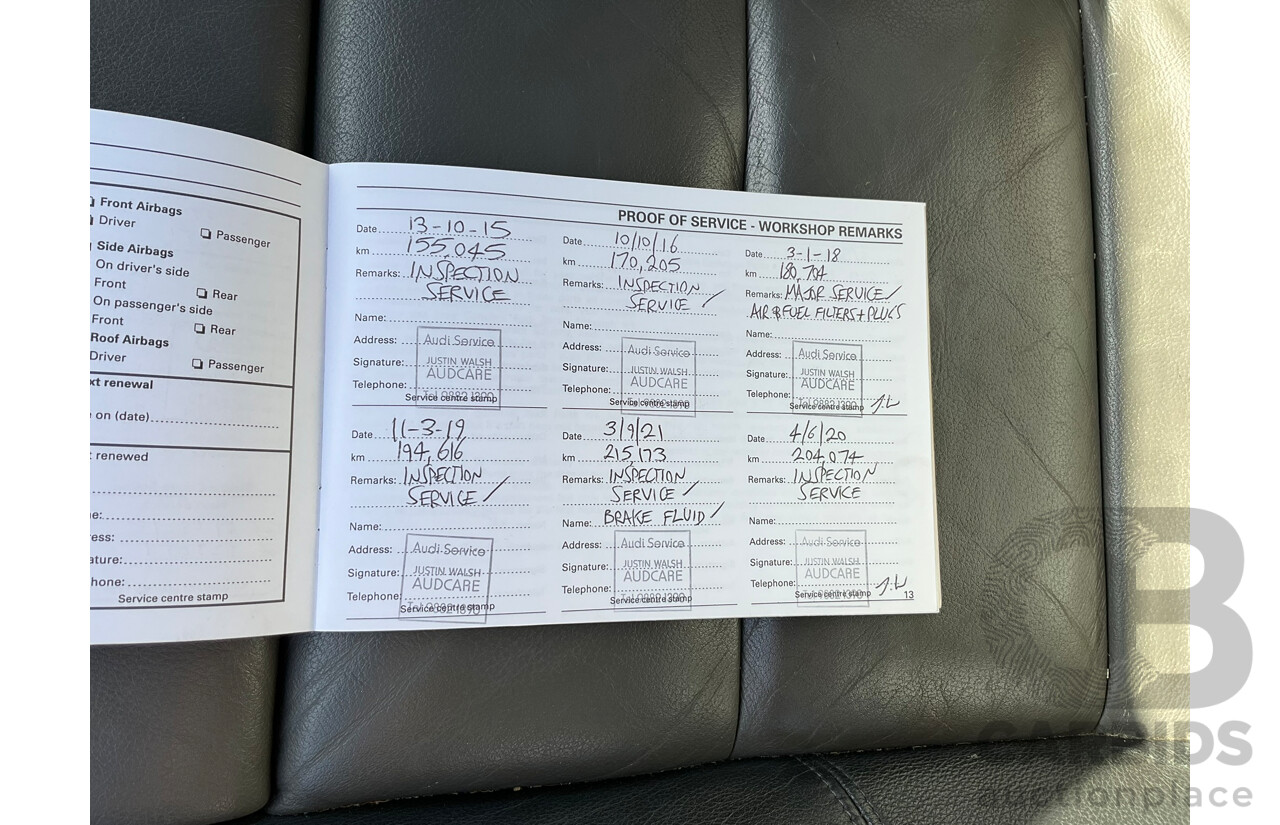 Front Airbags
Driver
Passenger
Side Airbags
On driver's side
Front
Rear
On passenger's side
Front
Rear
Roof Airbags
Driver
Passenger
xt renewal
on (date)
renewed
Service centre stamp
PROOF OF SERVICE - WORKSHOP REMARKS
Date 13-10-15
km 155,045
Remarks: INSPECTION
SERVICE
Name:
Address: Audi Service
Signature: JUSTIN WALSH
AUDCARE
Telephone:
Service centre stamp
Date 10/10/16
km 170,205
Remarks: INSPECTION
SERVICE /
Name:
Address: Audi Service
Signature: JUSTIN WALSH
AUDCARE
Telephone:
Service centre stamp
Date 3-1-18
km 180,704
Remarks: MAJOR SERVICE /
AIR & FUEL FILTERS + PLUGS
Name:
Address: Audi Service
Signature: JUSTIN WALSH
AUDCARE
Telephone:
Service centre stamp
Date 11-3-19
km 194,616
Remarks: INSPECTION
SERVICE /
Name:
Address: Audi Service
Signature: JUSTIN WALSH
AUDCARE
Telephone:
Service centre stamp
Date 3/9/21
km 215,173
Remarks: INSPECTION
SERVICE /
Name: BRAKE FLUID /
Address: Audi Service
Signature: JUSTIN WALSH
AUDCARE
Telephone:
Service centre stamp
Date 4/6/20
km 204,074
Remarks: INSPECTION
SERVICE
Name:
Address: Audi Service
Signature: JUSTIN WALSH
AUDCARE
Telephone:
Service centre stamp
13
CB
CARBIDS
auctionplace